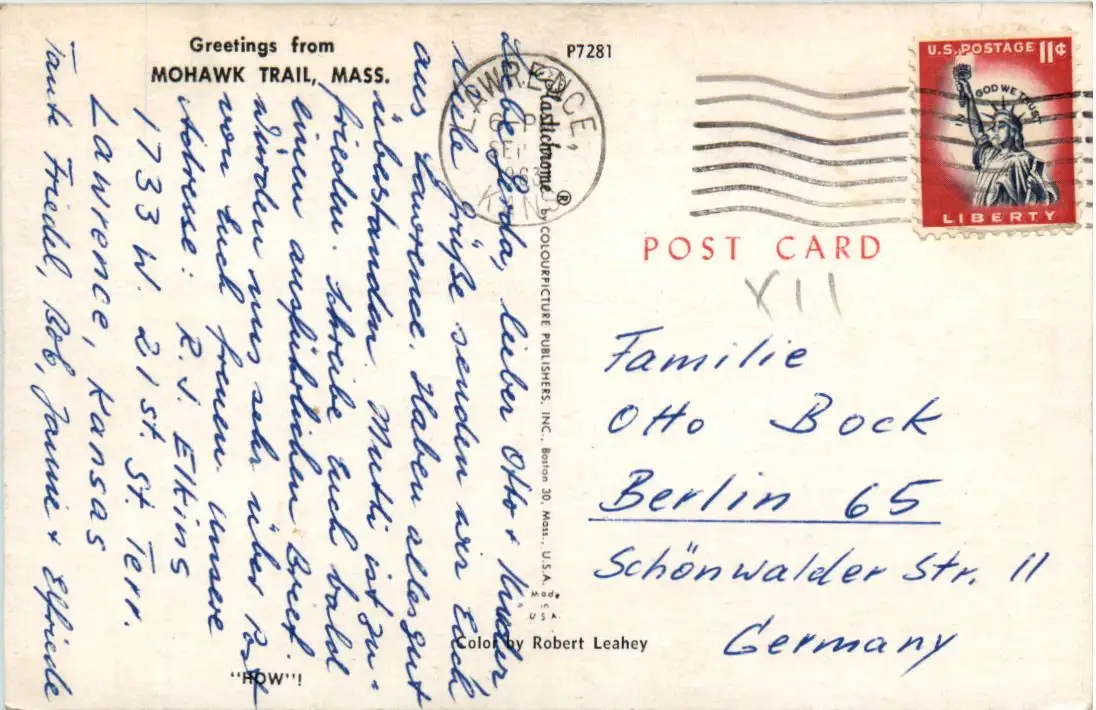 Greetings from
MOHAWK TRAIL, MASS.
P7281
LAWRENCE,
KANS
U.S. POSTAGE 11¢
IN GOD WE TRUST
LIBERTY
POST CARD
XII
Familie
Otto Bock
Berlin 65
Schönwalder Str. 11
Germany
Plastichrome® by COLOURPICTURE PUBLISHERS, INC., Boston 30, Mass., U.S.A.
Made
in
USA
Color by Robert Leahey
"HOW"!
Liebe Gerda, lieber Otto + Kinder
Viele Grüße senden wir Euch
aus Lawrence. Haben alles gut
überstanden. Mutti ist zu-
frieden. Schreibe Euch bald
einen ausführlichen Brief.
Würden uns sehr über Post
von Euch freuen. Unsere
Adresse: R. J. Elkins
1733 W. 21st. St. Terr.
Lawrence, Kansas
Tante Friedel, Bob, Janie + Elfriede